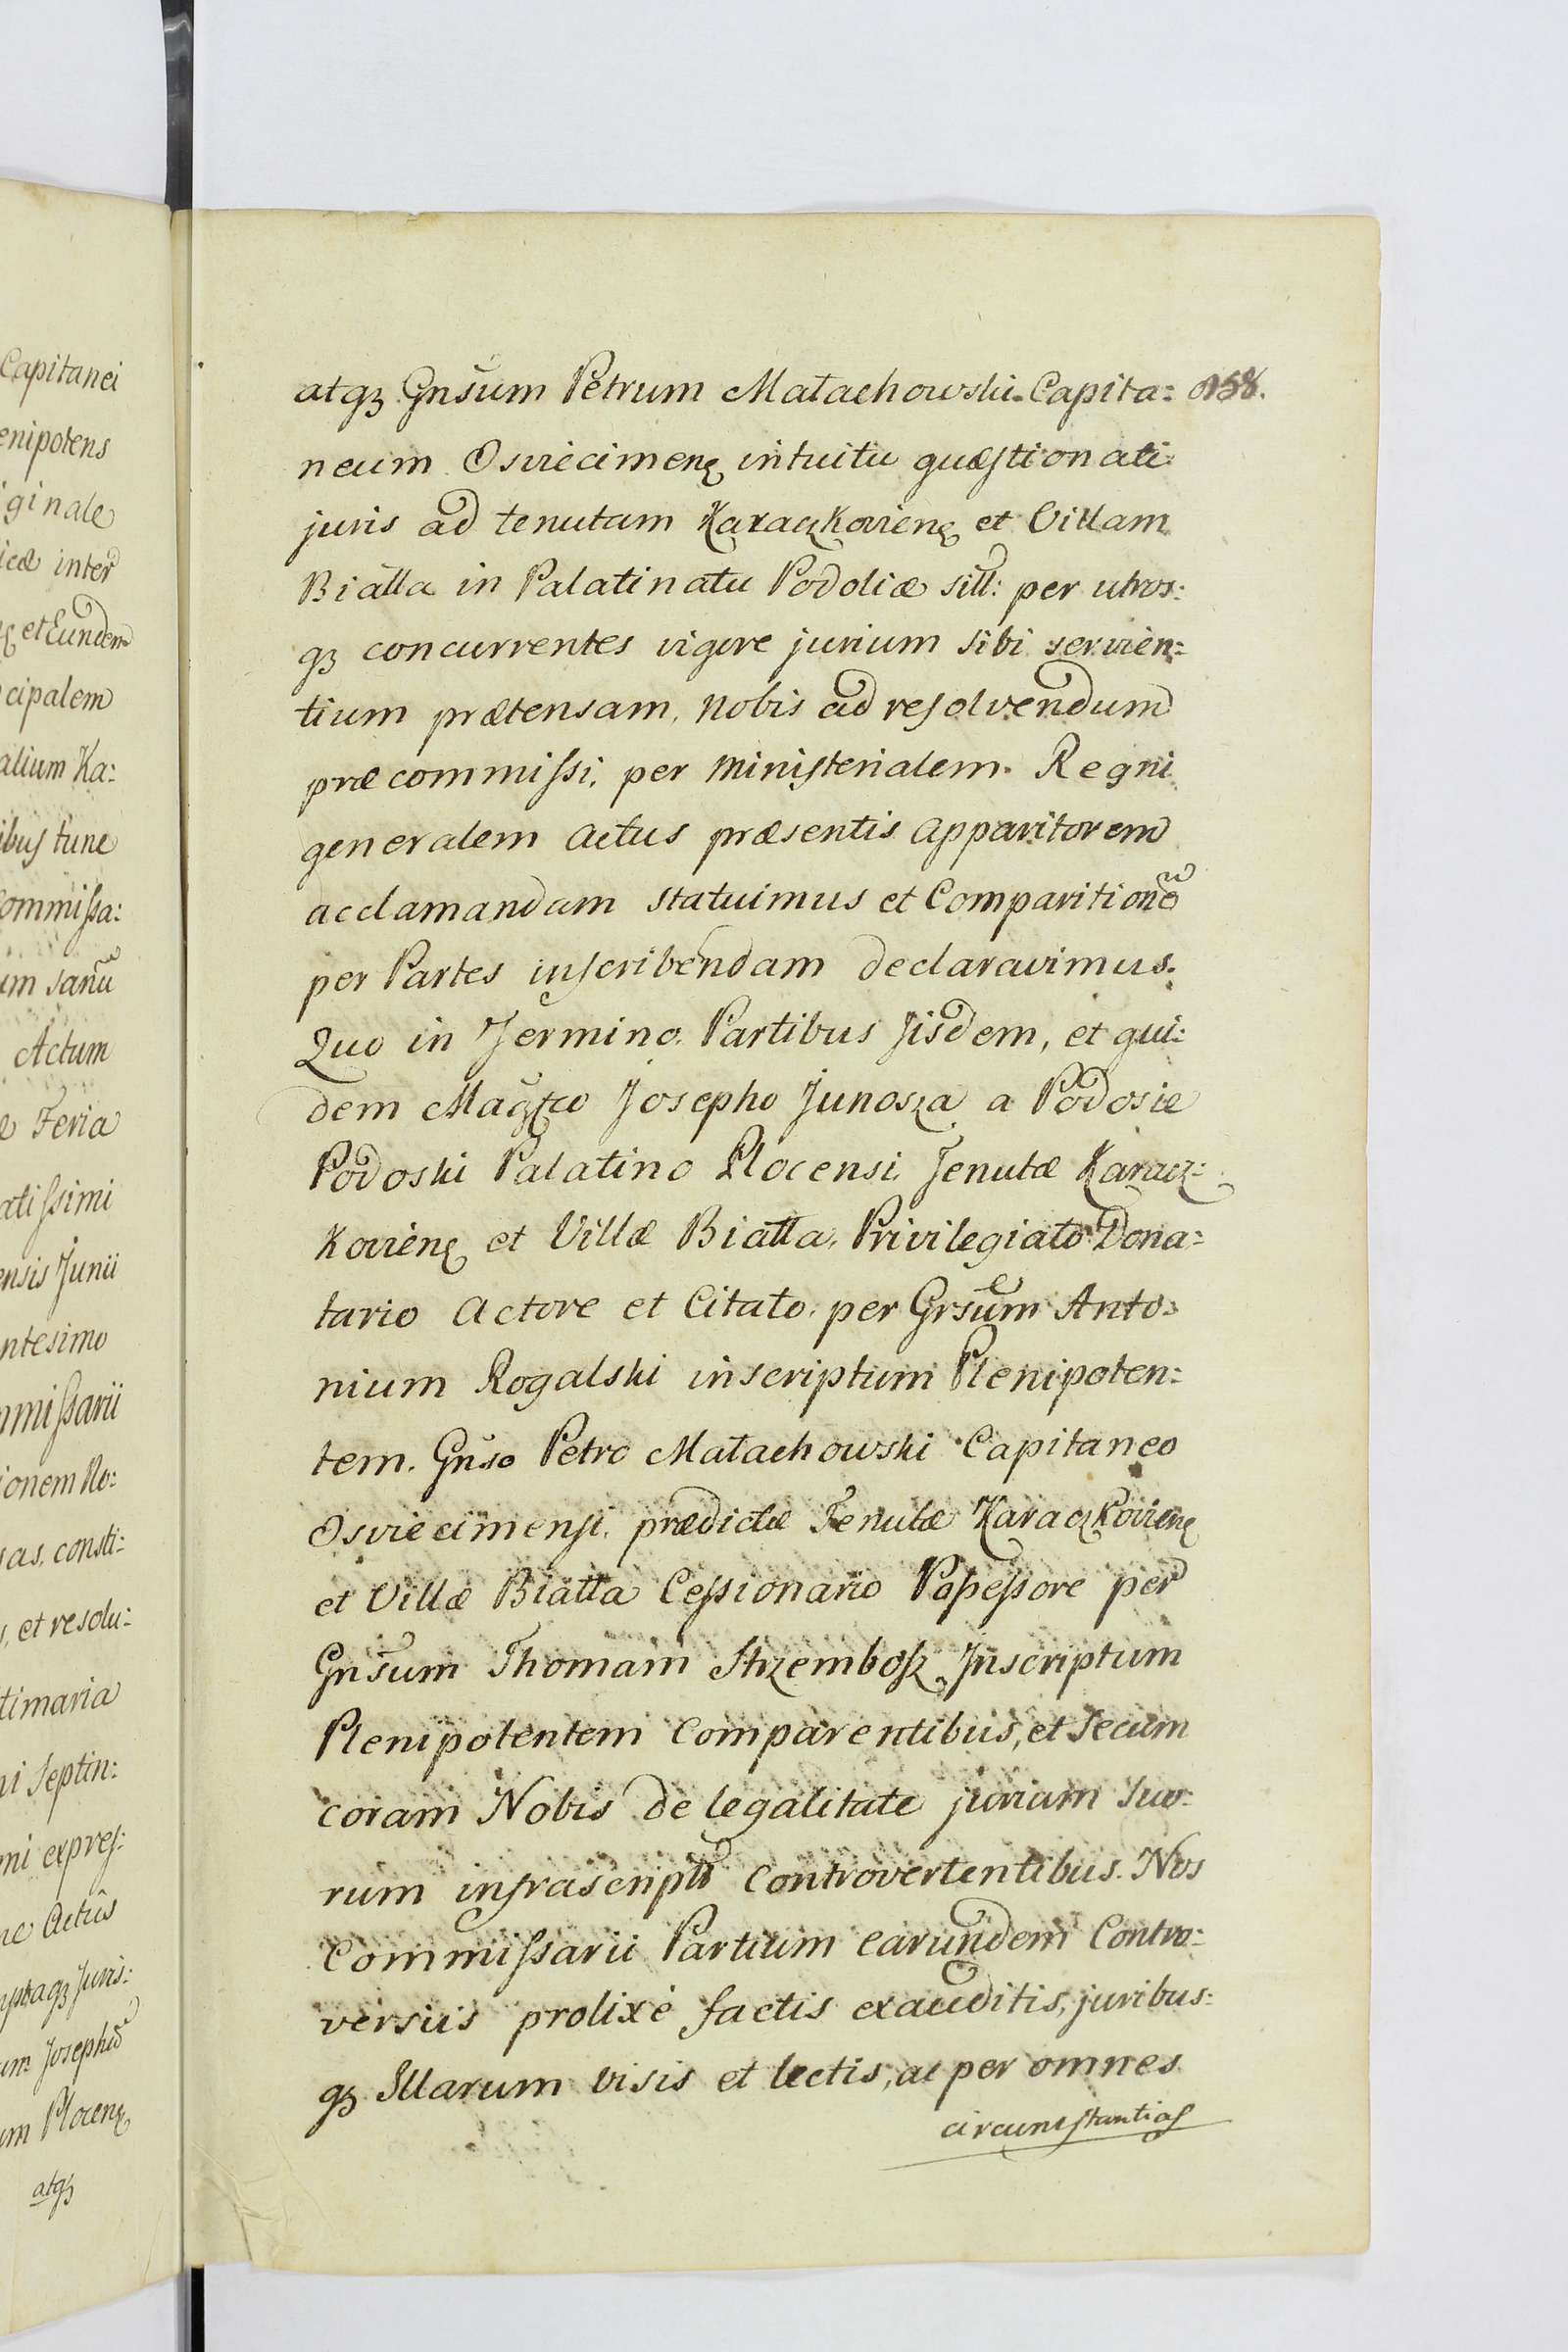 Capitanei
enipotens
iginale
icæ inter
et Eundem
cipalem
alium Ka:
ibus tunc
ommissa:
um sanũ
Actum
Feria
atissimi
ensis Junii
ntesimo
mmissarii
ionem No:
sas, consti:
, et resolu:
timaria
ni Septin:
mi expres:
Actûs
Juris:
um Josephũ
um Plocenꝭ
atqꝫ
atqꝫ Gnsum Petrum Małachowski Capita: 158.
neum Osviecimenꝭ intuitu quæstionati
juris ad tenutam Karaczkovienꝭ et Villam
Białła in Palatinatu Podoliæ sitt: per utros:
qꝫ concurrentes vigore jurium sibi servien:
tium prætensam, nobis ad resolvendum
præcommissi, per Ministerialem Regni
generalem actus præsentis apparitorem
acclamandam statuimus et Comparitionẽ
per Partes inscribendam declaravimus.
Quo in Termino Partibus Iisdem, et qui:
dem Magfco Josepho Junosza a Podosie
Podoski Palatino Plocensi, Tenutæ Karacz:
kovienꝭ et Villæ Białła, Privilegiato Dona:
tario Actore et Citato per Grsum Anto:
nium Rogalski inscriptum Plenipoten:
tem. Gnso Petro Małachowski Capitaneo
Osviecimensi, prædictæ Tenutæ Karaczkovienꝭ
et Villæ Białła Cessionario Possessore per
Gnsum Thomam Strzembosz Inscriptum
Plenipotentem Comparentibus, et Secum
coram Nobis de legalitate jurium Suo:
rum infrascriptt Controvertentibus. Nos
Commissarii Partium earundem Contro:
versiis prolixé factis exauditis, juribus:
qꝫ Illarum visis et lectis, ac per omnes
circumstantias